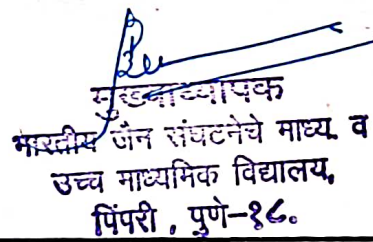 मुख्याध्यापक
भारतीय जैन संघटनेचे माध्य. व
उच्च माध्यमिक विद्यालय,
पिंपरी, पुणे-१८.